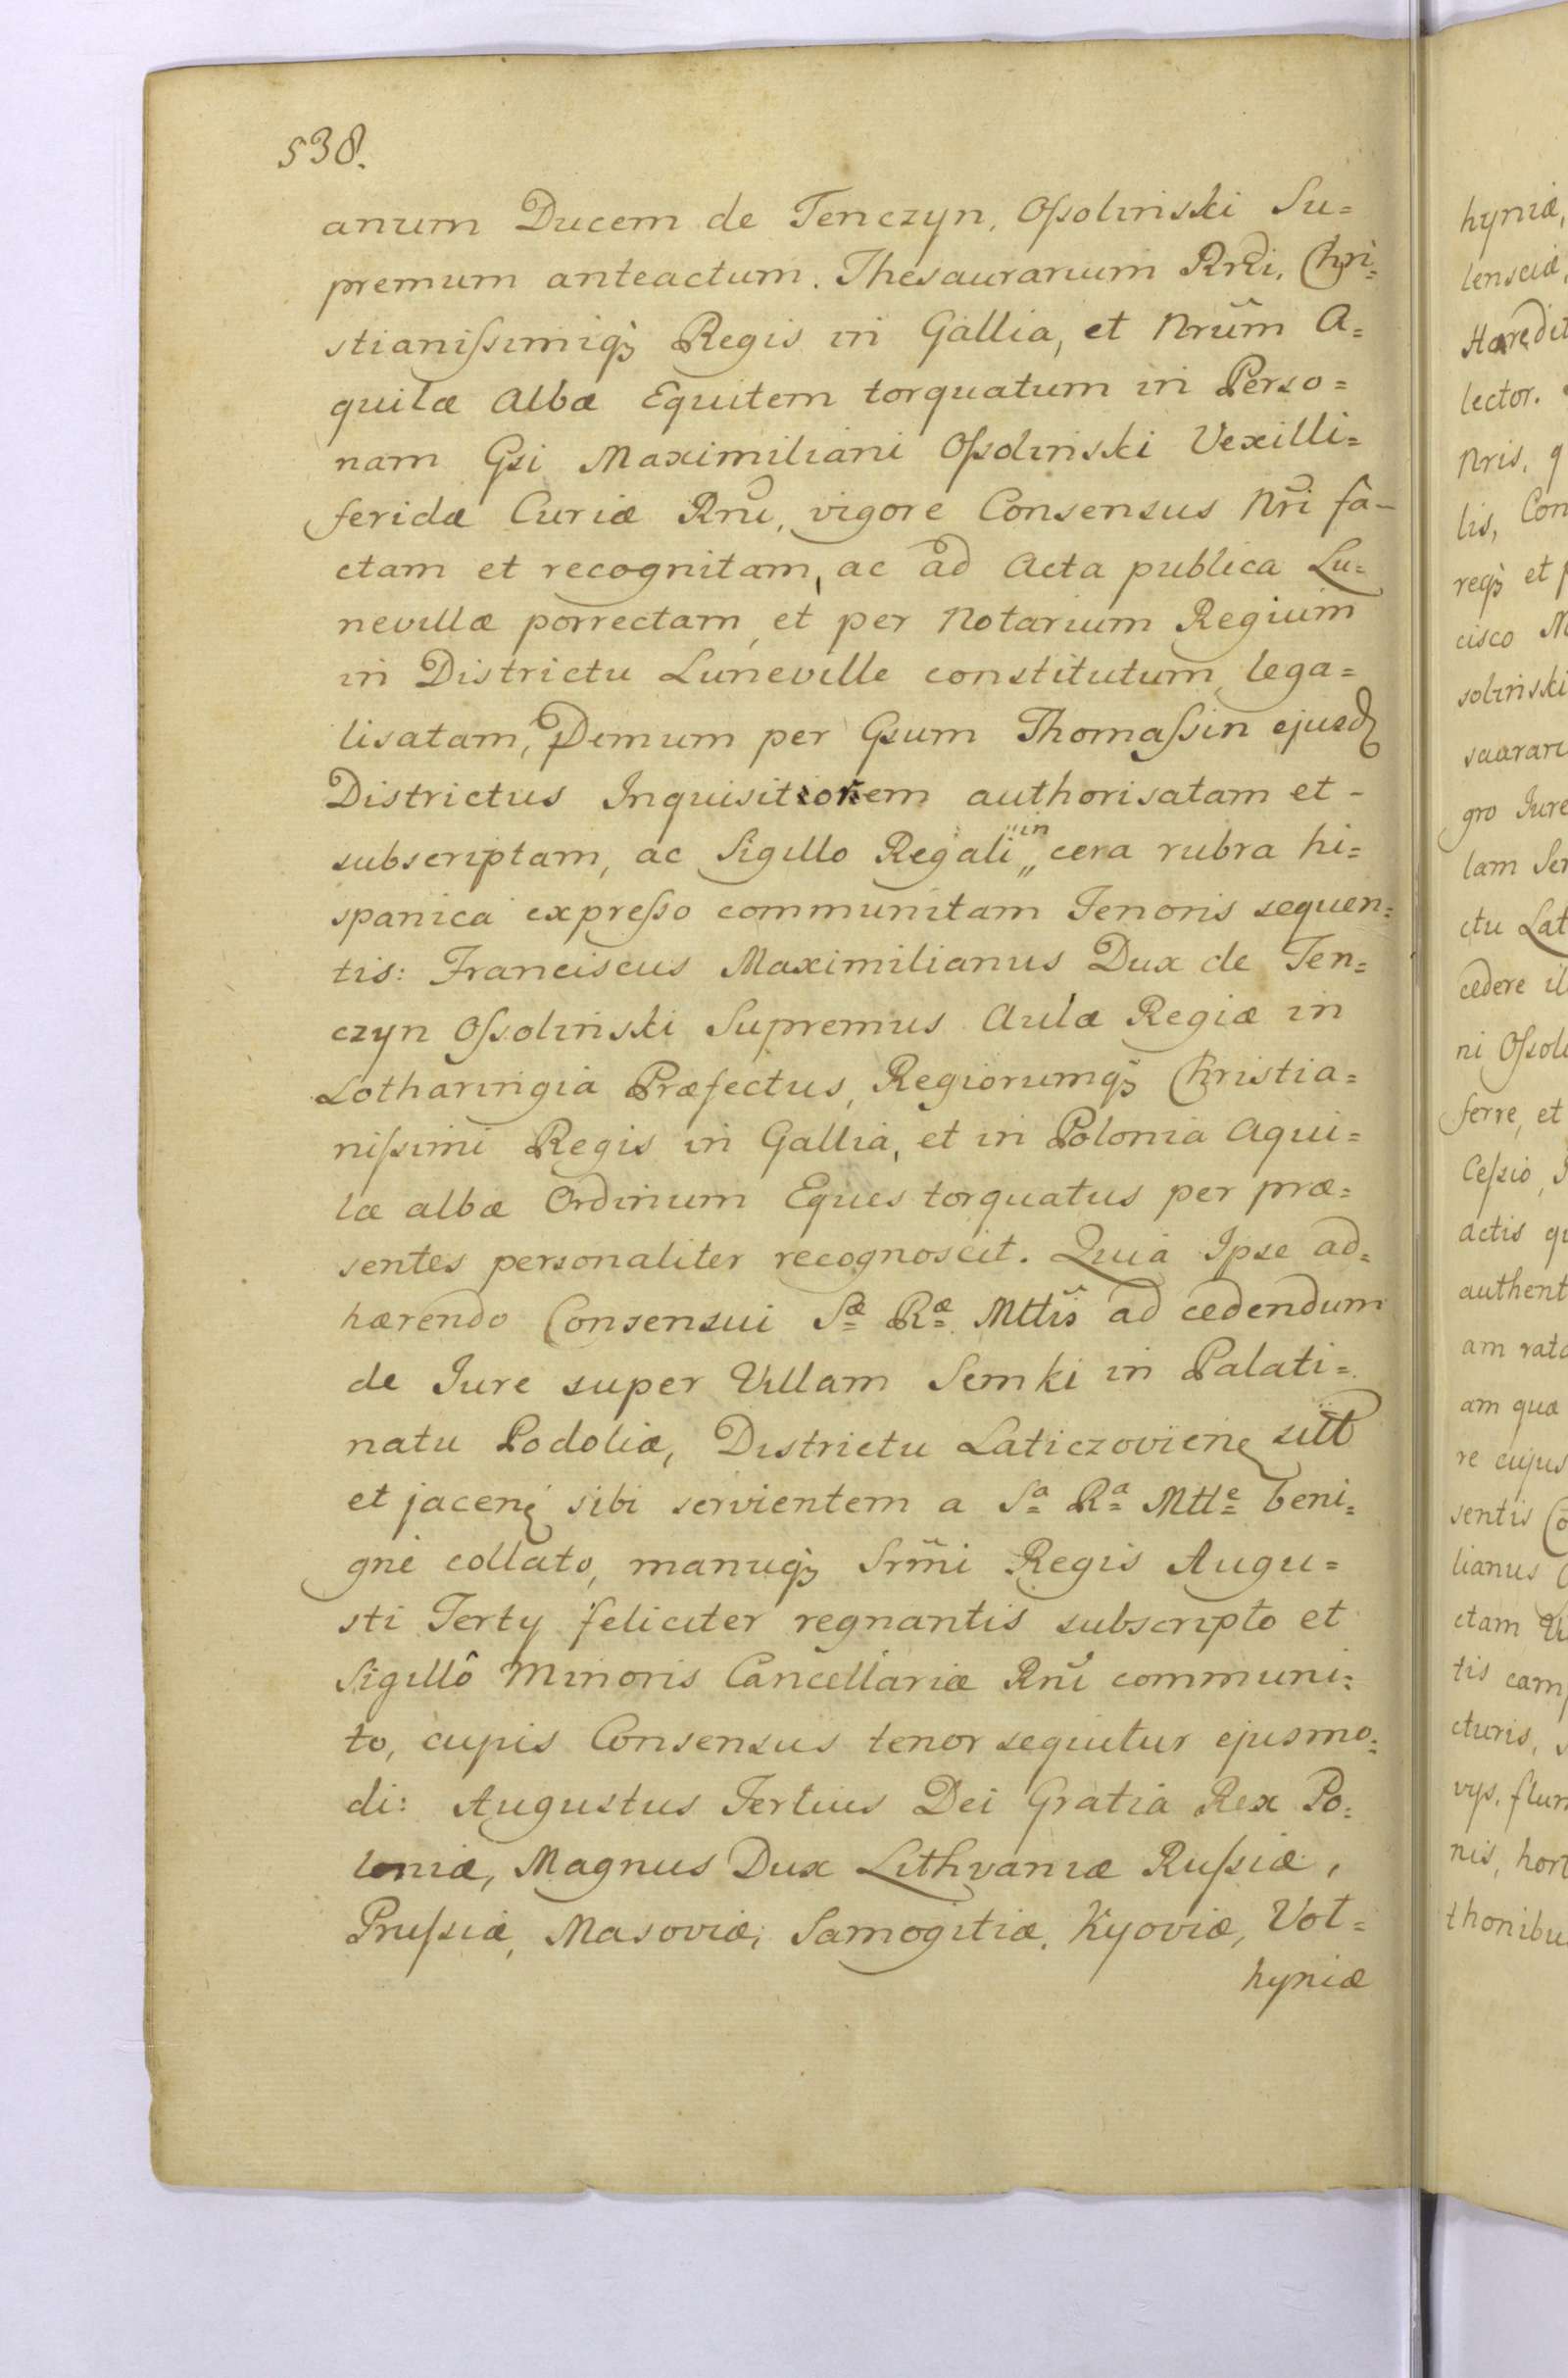 538.
anum Ducem de Tenczyn, Ossoliński Su=
premum anteactum. Thesaurarium RRdi, Chri=
stianissimiq₃ Regis in Gallia, et Nrũm A=
quilæ Albæ Equitem torquatum in Perso=
nam Gsi Maximiliani Ossoliński Vexilli=
feridæ Curiæ Rnĩ, vigore Consensus Nrĩ fa-
ctam et recognitam, ac ad Acta publica Lu=
nevillæ porrectam, et per Notarium Regium
in Districtu Luneville constitutum, lega=
lisatam, Demum per Gsum Thomassin ejusd
Districtus Inquisitionem authorisatam et -
subscriptam, ac Sigillo Regali „in„ cera rubra hi=
spanica expresso communitam Tenoris sequen=
tis: Franciscus Maximilianus Dux de Ten=
czyn Ossoliński Supremus Aulæ Regiæ in
Lotharingia Præfectus, Regiorumq₃ Christia=
nissimi Regis in Gallia, et in Polonia Aqui=
læ albæ Ordinum Eques torquatus per præ=
sentes personaliter recognoscit. Quia Ipse ad=
hærendo Consensui Sæ Ræ Mttis ad cedendum
de Jure super Villam Semki in Palati=
natu Podoliæ, Districtu Laticzovien sitt
et jacen sibi servientem a Sa Ra Mtte beni=
gnè collato, manuq₃ Srm̃i Regis Augu=
sti Terty feliciter regnantis subscripto et
Sigillô Minoris Cancellariæ Rnĩ communi=
to, cujus Consensus tenor sequitur ejusmo=
di: Augustus Tertius Dei Gratia Rex Po=
loniæ, Magnus Dux Lithvaniæ Russiæ,
Prussiæ, Masoviæ, Samogitiæ, Kyoviæ, Vol=
hyniæ
hyniæ,
lenscia
Hæredit
lector.
Nris, q
lis, Con
req₃ et p
cisco
soliński
saurari
gro Jure
lam Sem
ctu Lat
cedere il
ni Ossoli
ferre, et
Cessio,
actis qu
authent
am rata
am quæ
re cujus
sentis Co
lianus
ctam
tis camp
cturis,
vys, flum
nis, hort
thonibu